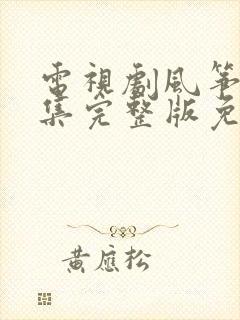 電視劇風箏
集完整版免
黃應松